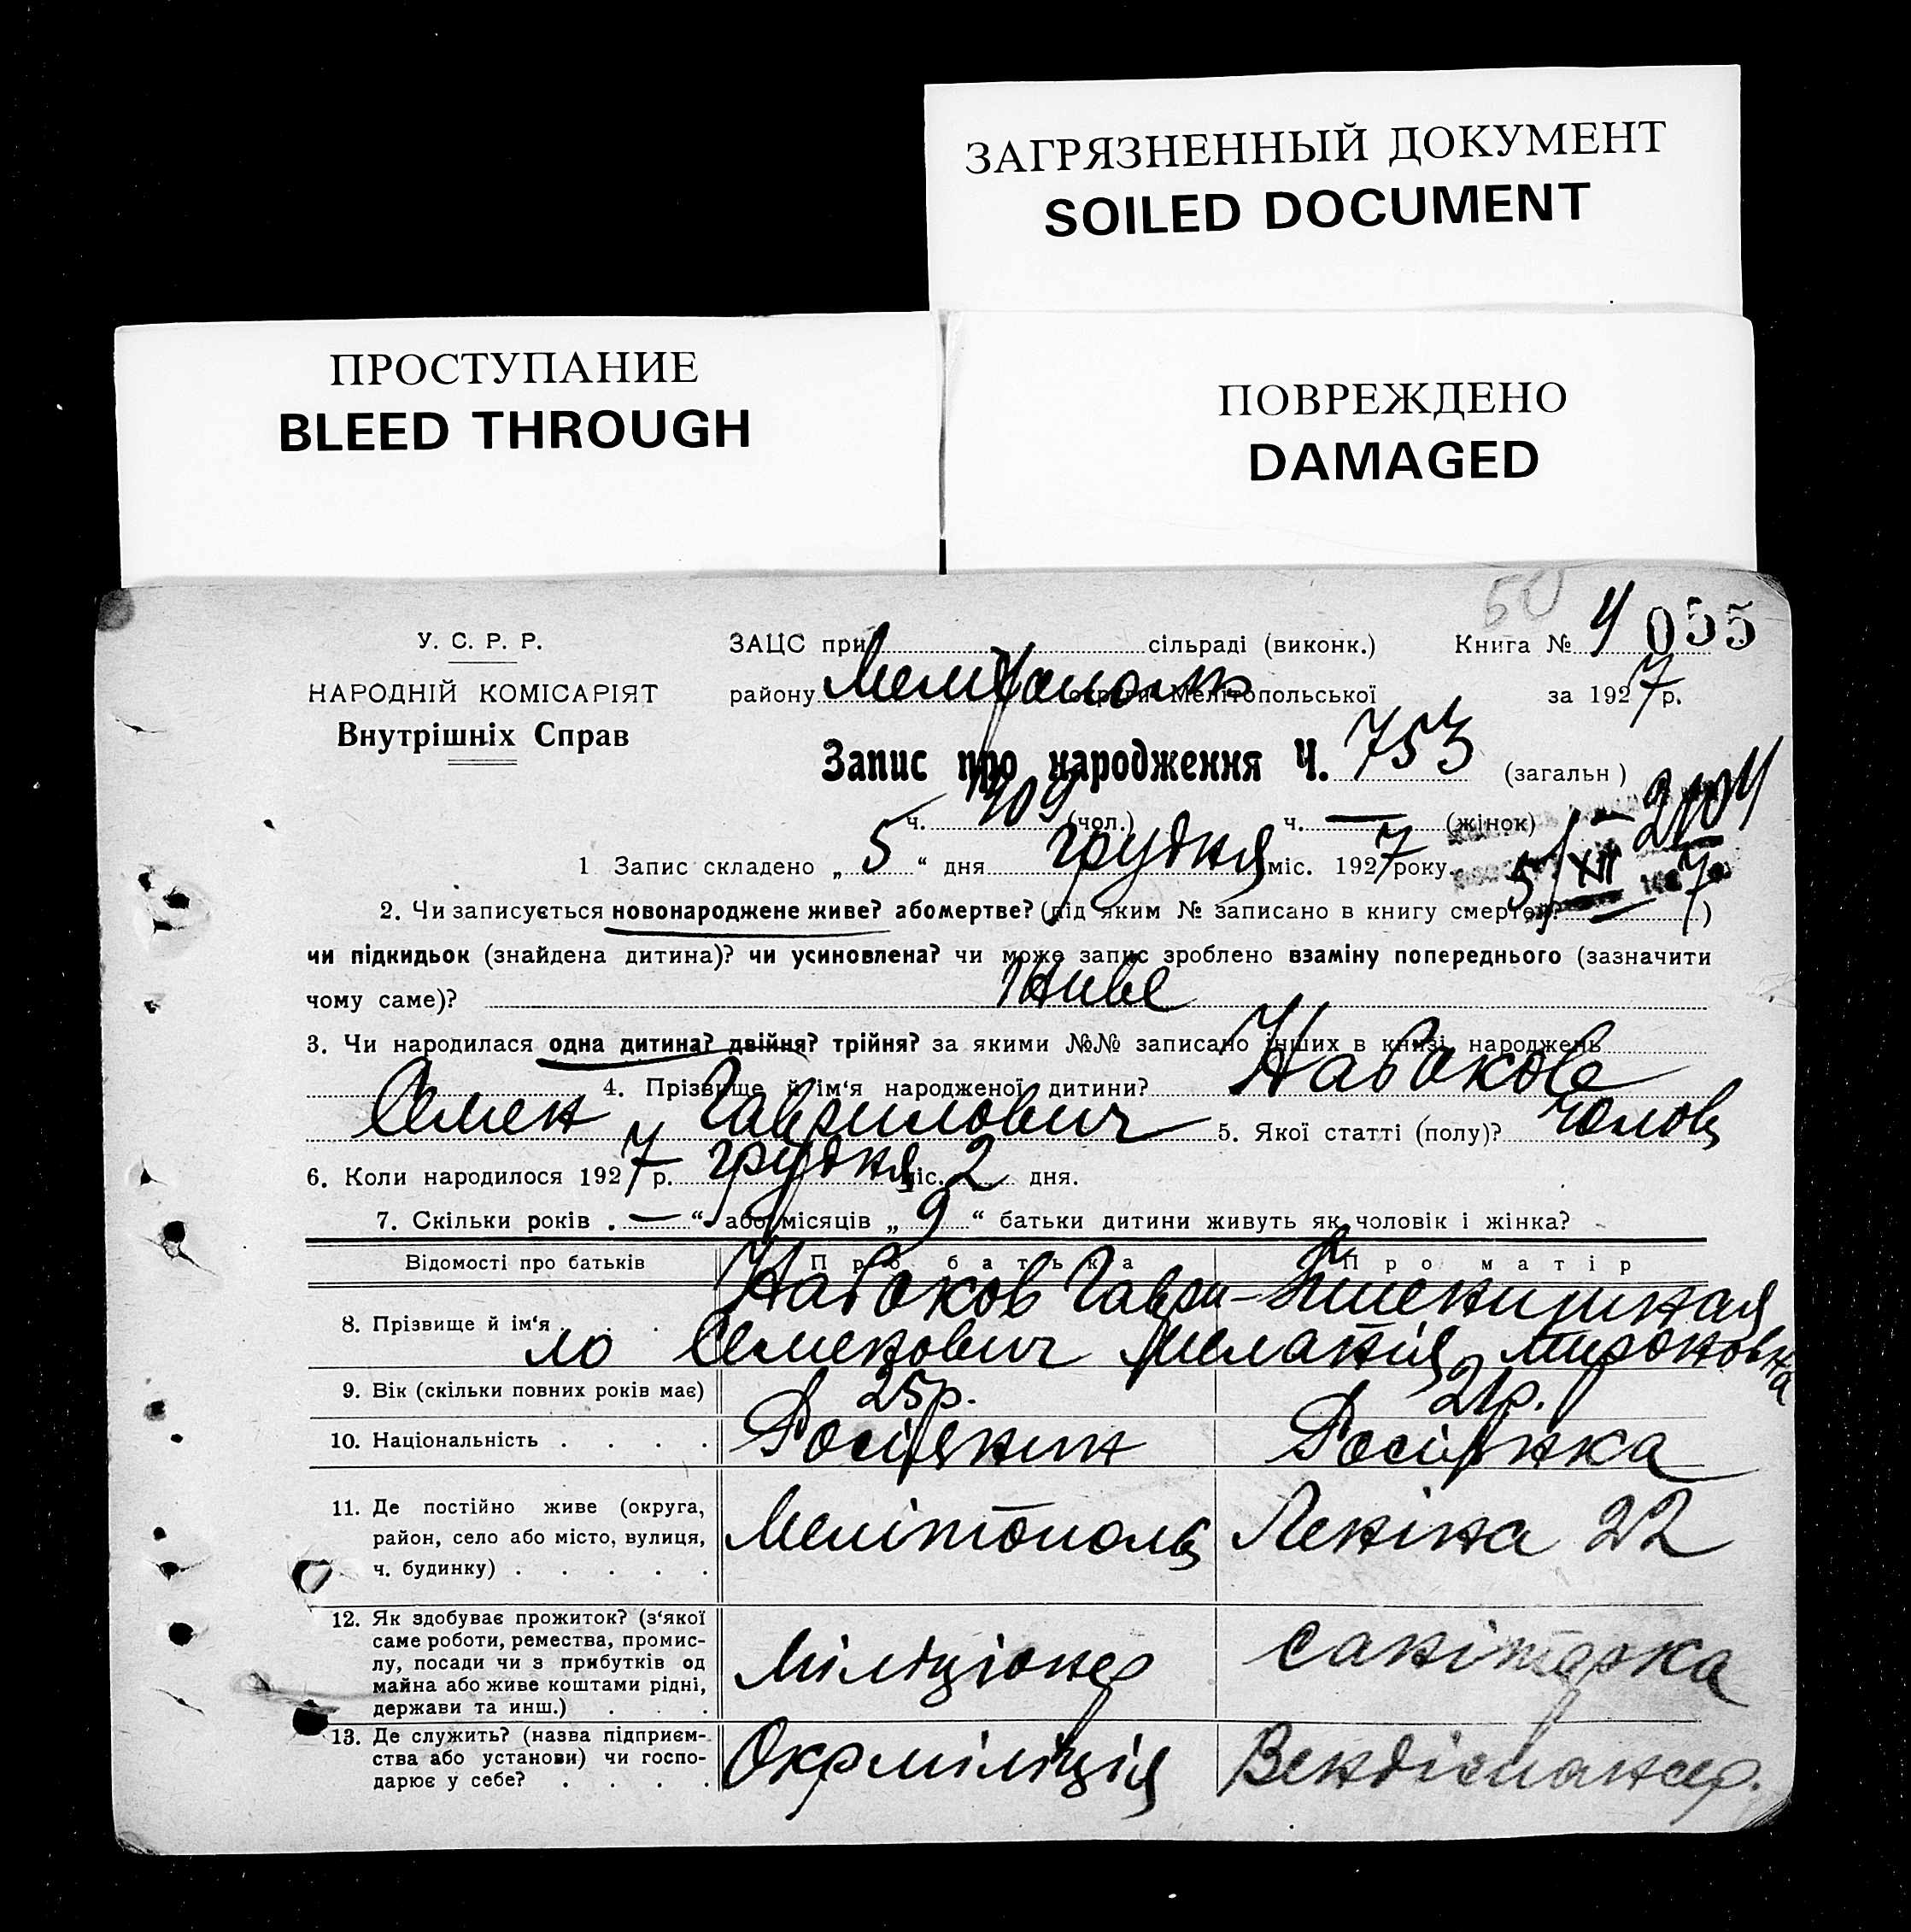 ЗАГРЯЗНЕННЫЙ ДОКУМЕНТ
SOILED DOCUMENT
ПРОСТУПАНИЕ
BLEED THROUGH
ПОВРЕЖДЕНО
DAMAGED
У. С. Р. Р.
НАРОДНІЙ КОМІСАРІЯТ
Внутрішніх Справ
50
ЗАЦС при сільраді (виконк.) Книга № 4 055
району Мелітополь округи Мелітопольської за 1927 р.
Запис про народження Ч. 753 (загальн)
ч. 409 (чол.) ч. — (жінок)
1 Запис складено „ 5 “ дня грудня міс. 1927 року 5/XII 7
2. Чи записується новонароджене живе? або мертве? (під яким № записано в книгу смертей? )
чи підкидьок (знайдена дитина)? чи усиновлена? чи може запис зроблено взаміну попереднього (зазначити
чому саме)? Живе
3. Чи народилася одна дитина? двійня? трійня? за якими №№ записано інших в книзі народжень
4. Прізвище й ім‘я народженої дитини? Набоков
Семен Гаврилович 5. Якої статті (полу)? чолов
6. Коли народилося 1927 р. грудня міс. 2 дня.
7. Скільки років „ — “ або місяців „ 9 “ батьки дитини живуть як чоловік і жінка?
Відомості про батьків Про батька Про матір
8. Прізвище й ім‘я . . . Набоков Гаври-
ло Семенович Меланія Мироновна
9. Вік (скільки повних років має) 25р. 21р.
10. Національність . . . . Росіянин Росіянка
11. Де постійно живе (округа,
район, село або місто, вулиця, Мелітополь Леніна 22
ч. будинку) . . . . .
12. Як здобуває прожиток? (з‘якої
саме роботи, ремества, промис-
лу, посади чи з прибутків од Міліціонер санітарка
майна або живе коштами рідні,
держави та инш.) . . .
13. Де служить? (назва підприєм-
ства або установи) чи госпо- Окрміліція Вендіспансер.
дарює у себе? . . . .